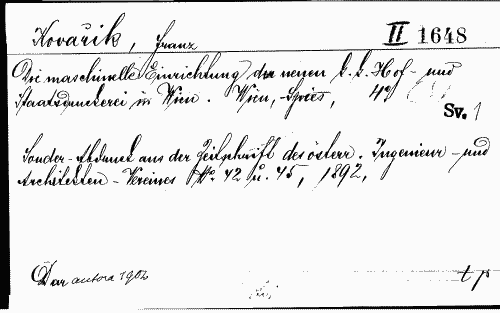 Kovařík, Franz II 1648
Die maschinelle Einrichtung der neuen k. k. Hof- und
Staatsdruckerei in Wien. Wien, Spies, 4°
Sv. 1
Sonder-Abdruck aus der Zeitschrift des österr. Ingenieur- und
Architekten-Vereines No. 42 u. 45, 1892,
Dar autora 1902